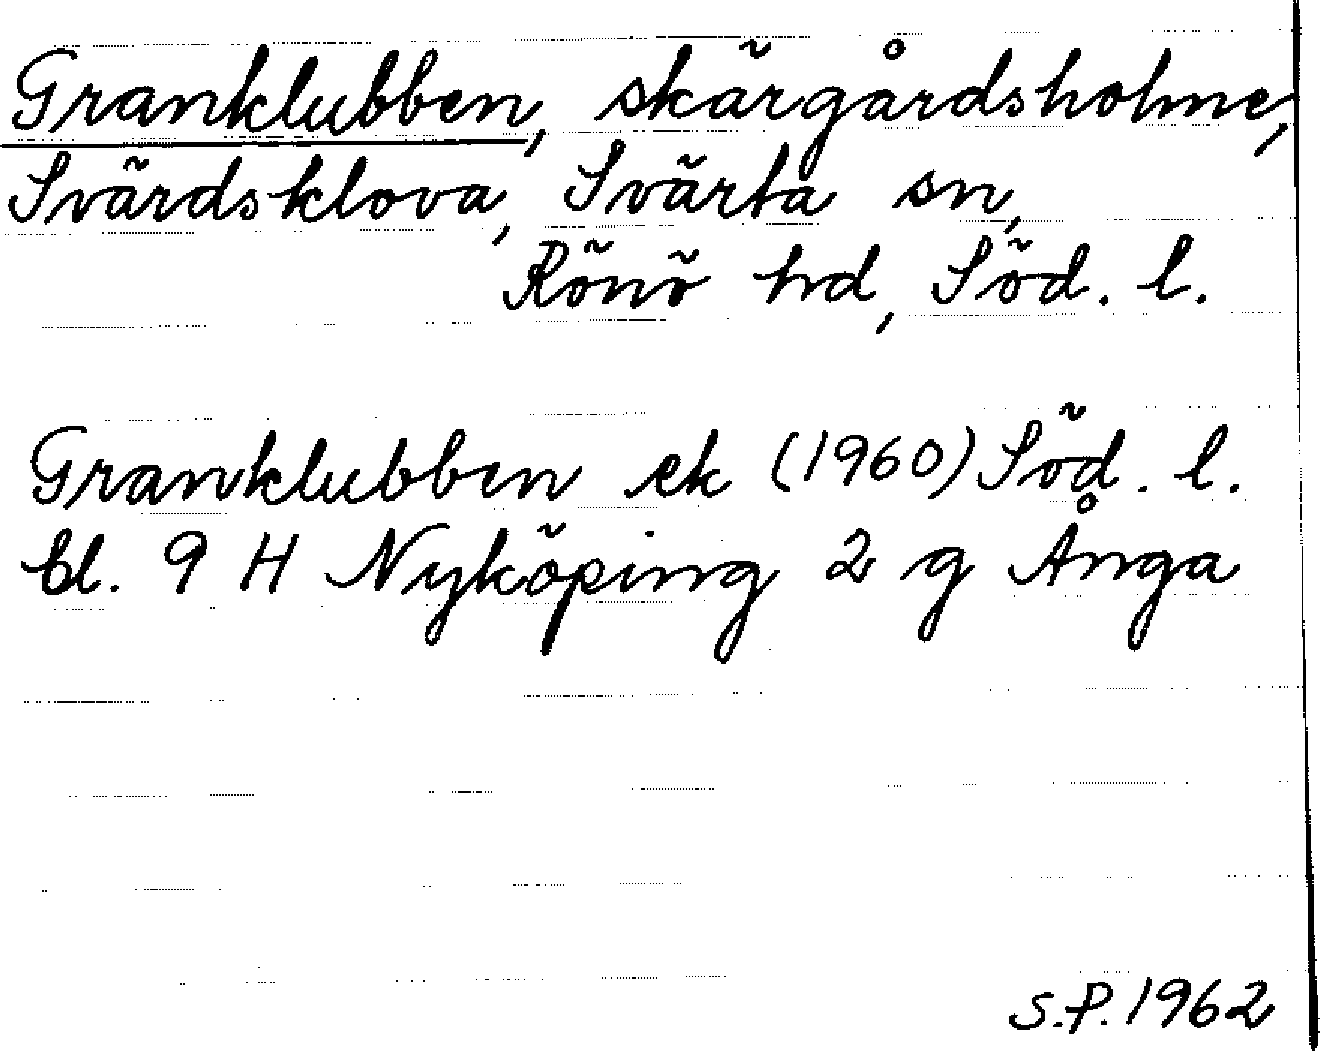 Granklubben, skärgårdsholme,
Svärdsklova, Svärta sn,
Rönö hd, Söd. l.
Granklubben ek (1960) Söd. l.
bl. 9 H Nyköping 2 g Ånga
S.P. 1962